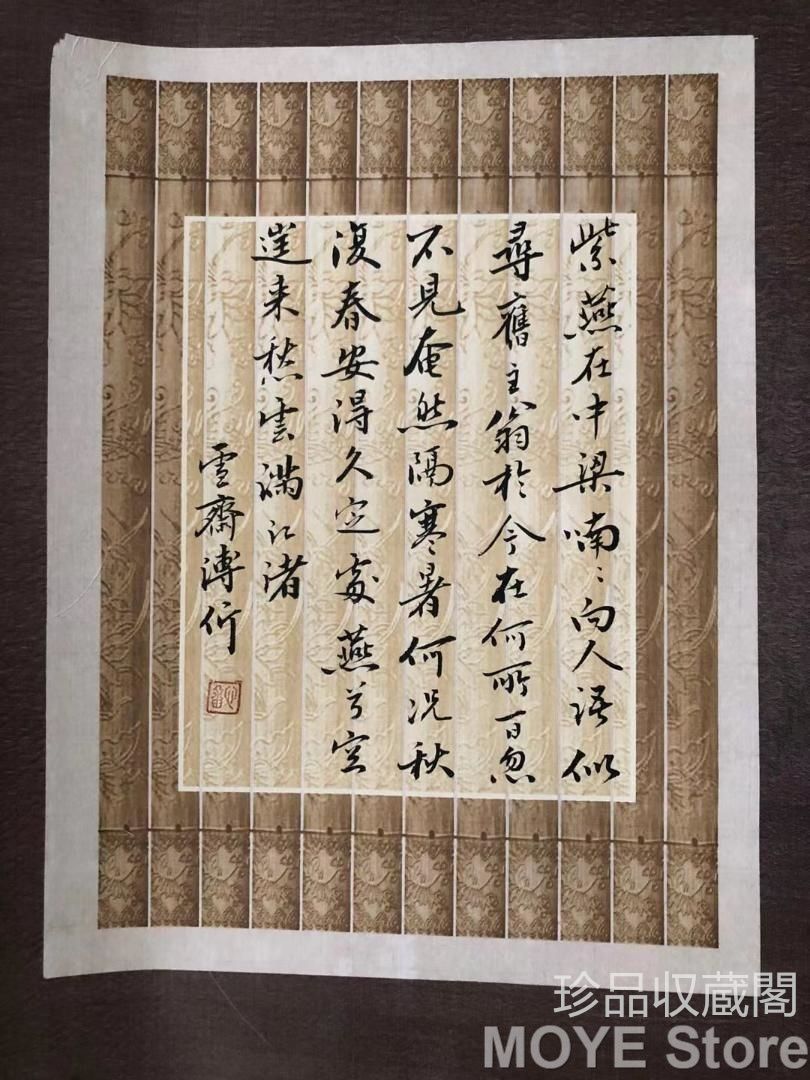 紫燕在中梁喃〻向人语似
尋舊主翁於今在何所一百忽
不見奄然隔寒暑何况秋
復春安得久定處燕兮空
遑来愁雲滿江渚
雪齋溥伒
珍品收蔵閣
MOYE Store